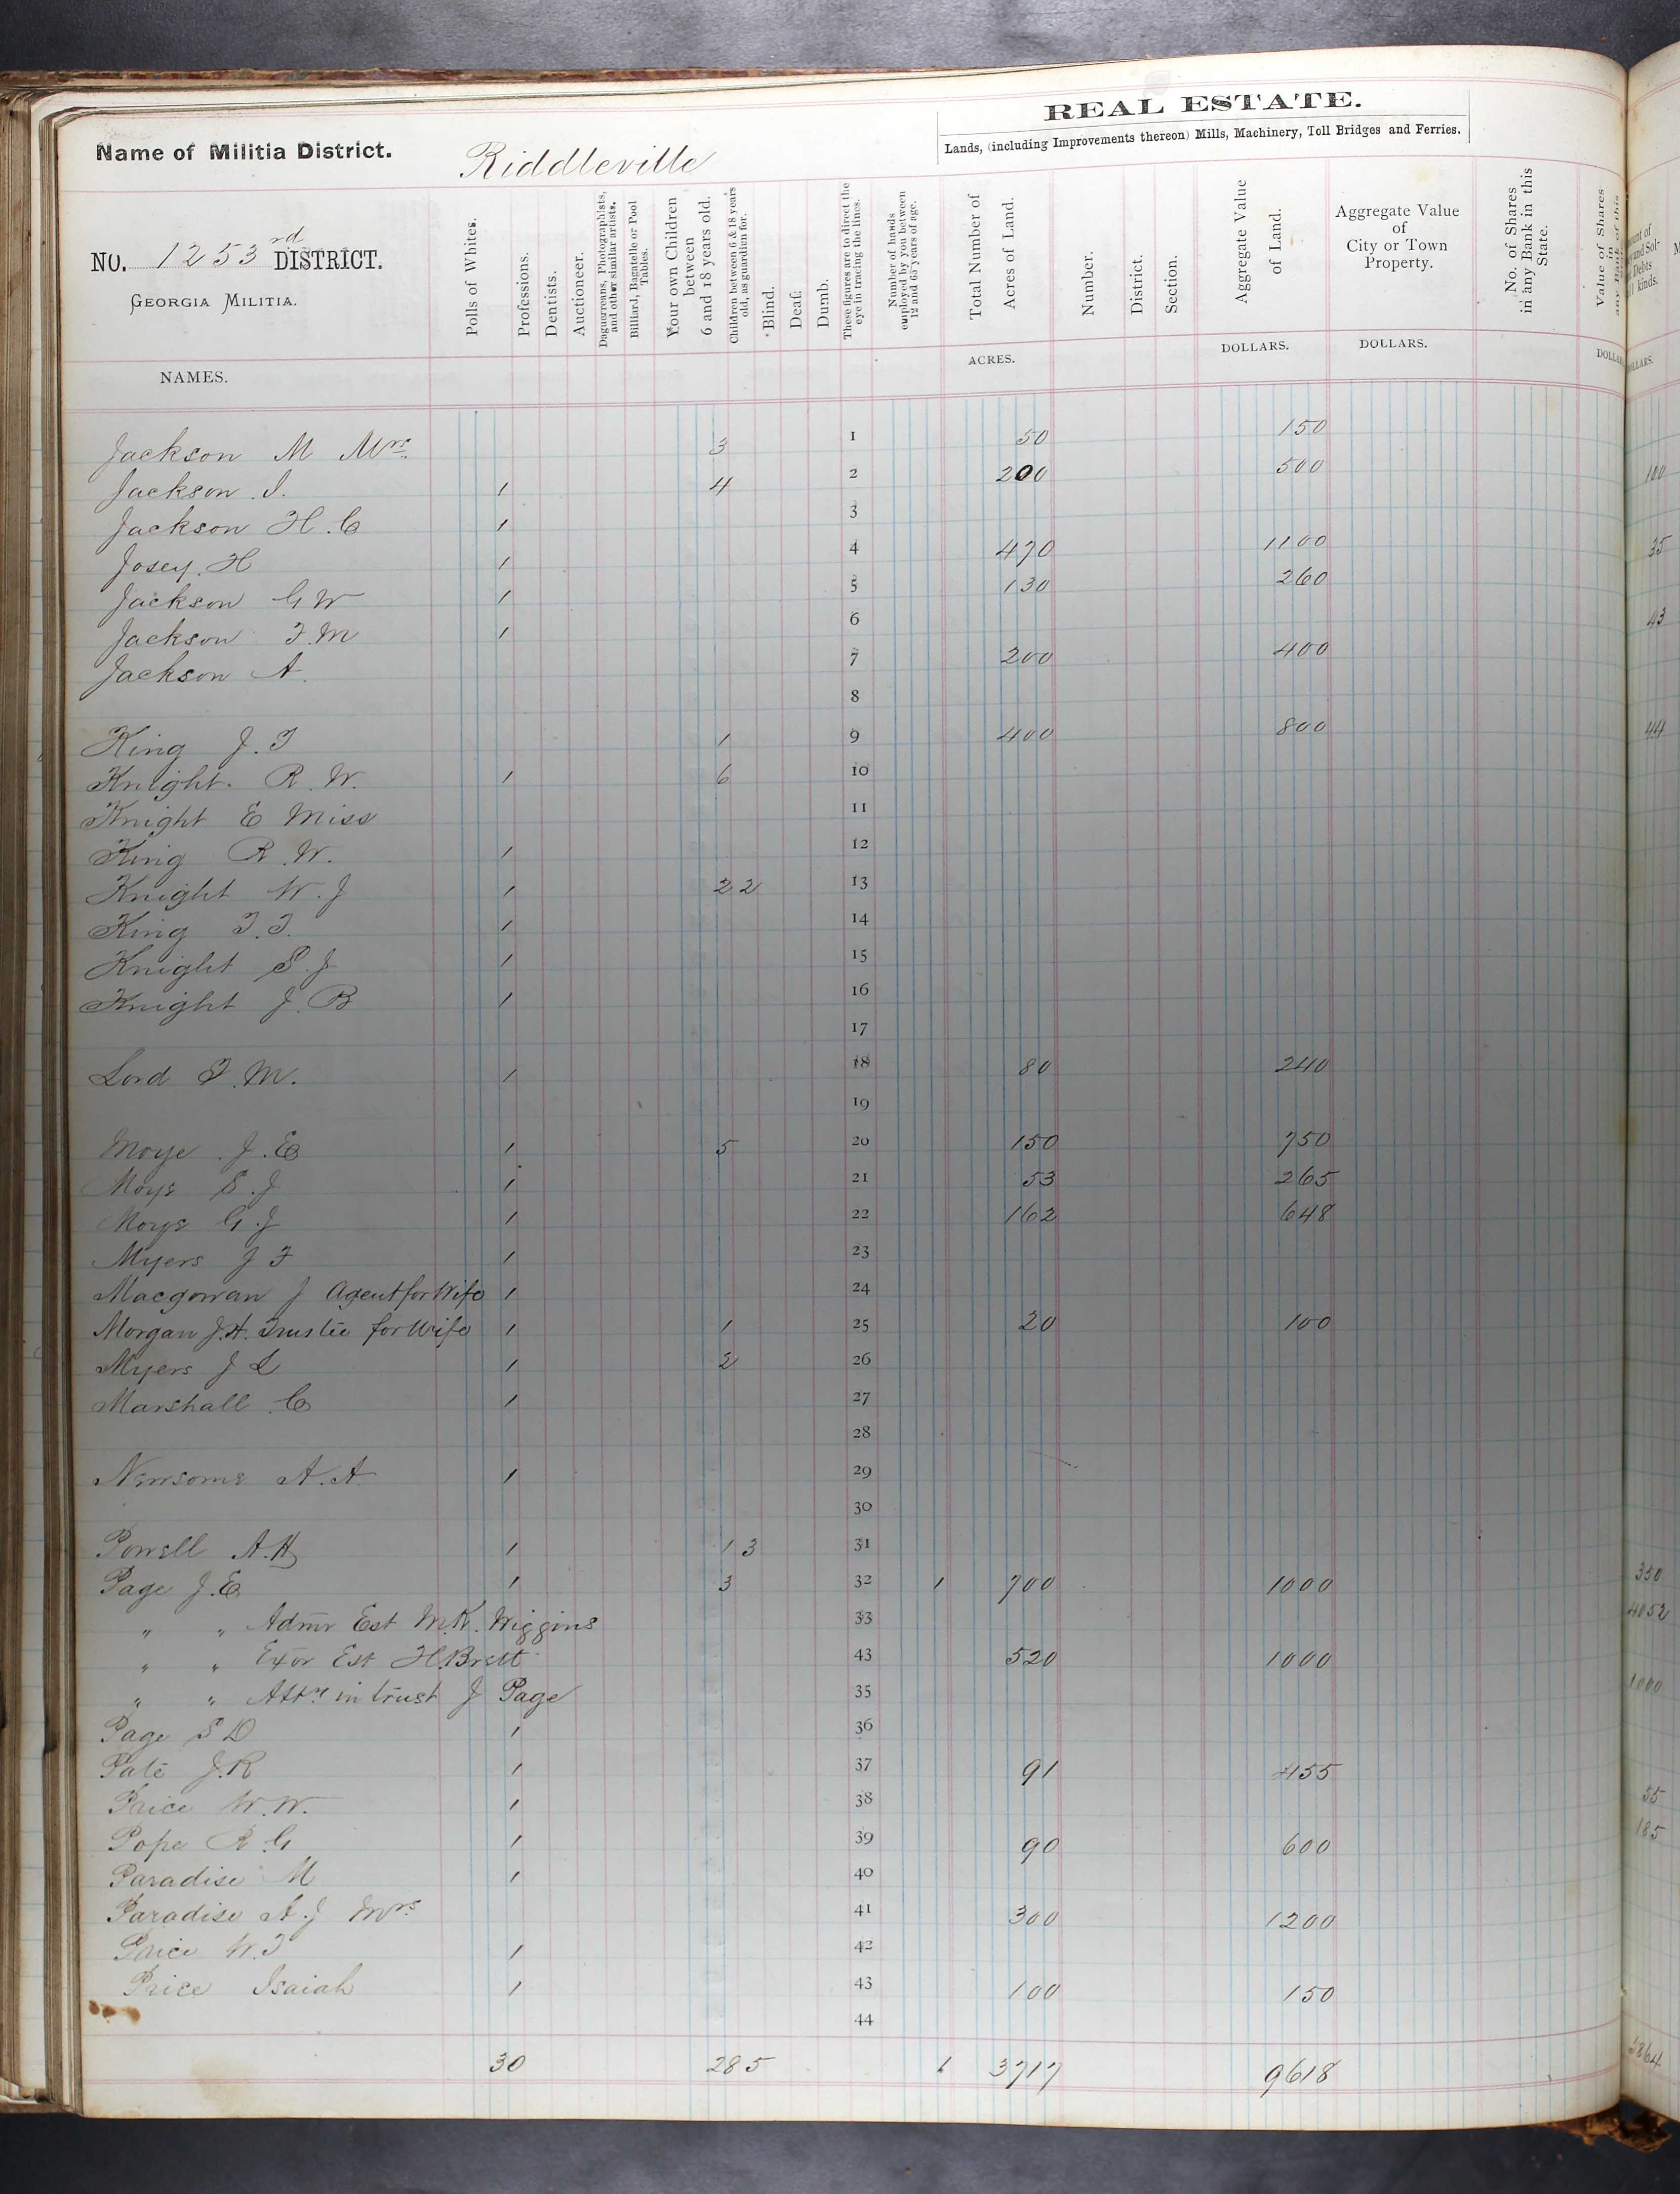 REAL ESTATE.
Lands, (including Improvements thereon) Mills, Machinery, Toll Bridges and Ferries.
Name of Militia District. Riddleville
NO. 1253rd DISTRICT.
GEORGIA MILITIA.
NAMES.
Polls of Whites.
Professions.
Dentists.
Auctioneer.
Daguerreans, Photographists, and other similar artists.
Billiard, Bagatelle or Pool Tables.
Your own Children between 6 and 18 years old.
Children between 6 & 18 years old, as guardian for.
Blind.
Deaf.
Dumb.
These figures are to direct the eye in tracing the lines.
Number of hands employed by you between 12 and 65 years of age.
Total Number of Acres of Land.
ACRES.
Number.
District.
Section.
Aggregate Value of Land.
DOLLARS.
Aggregate Value of City or Town Property.
DOLLARS.
No. of Shares in any Bank in this State.
Value of Shares in any Bank of this
Jackson M Mrs 3 1 50 150
Jackson J. 1 4 2 200 500 100
Jackson H. C 1 3
Josey. H 1 4 470 1100 35
Jackson G W 1 5 130 260
Jackson F. M 1 6 43
Jackson A. 7 200 400
8
King J. T 1 9 400 800 44
Knight. R. W. 1 6 10
Knight E Miss 11
King R. W. 1 12
Knight W. J 1 2 2 13
King T. T. 1 14
Knight S. J 1 15
Knight J. B 1 16
17
Lord F. M. 1 18 80 240
19
Moye. J. E 1 5 20 150 750
Moye S. J 1 21 53 265
Moye G. J 1 22 162 648
Myers J F 1 23
Macgowan J Agent for Wife 1 24
Morgan J. H. Trustee for Wife 1 1 25 20 100
Myers J L 1 2 26
Marshall C 1 27
28
Newsome A. A 1 29
30
Powell A. H 1 1 3 31
Page J. E 1 3 32 1 700 1000 350
" " Admr Est M. K. Wiggins 33 4052
" " Exor Est H. Brett 43 520 1000
" " Atty in trust J Page 35 1000
Page S D 1 36
Pate J. R 1 37 91 455
Price W. W. 1 38 55
Pope R. G 1 39 90 600 185
Paradise M 1 40
Paradise A. J Mrs 41 300 1200
Price W. T 1 42
Price Isaiah 1 43 100 150
44
30 28 5 1 3717 9618